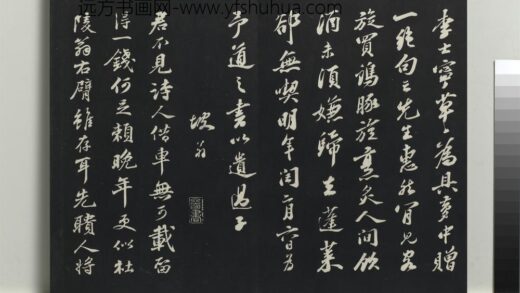 远方书画网-www.yfshuhua.com
李士寧草草為具夢中贈
一絕句云先生惠然肯見客
旋買鷄豚旋烹炙人間飲
酒未須嫌歸去蓬萊
卻無喫明年閏月日為
予道之書以遺過子
坡翁
君不見詩人借車無可載留
得一錢何足賴晚年更似杜
陵翁右臂雖存耳先聵人將